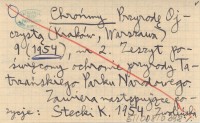 Chrońmy Przyrodę Oj-
czystą (Kraków, Warszawa)
9 (1954), nr 2. Zeszyt po-
święcony ochronie przyrody Ta-
trzańskiego Parku Narodowego.
Zawiera następujące po-
zycje: Stecki K. 1954